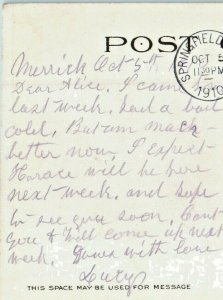 POST
SPRINGFIELD
OCT 5
11 30 PM
1910
Merrick Oct 5th
Dear Alice. I came
last week. had a bad
cold. But am much
better now I expect
Horace will be here
next week. and hope
to see you soon. Cant
you & Will come up next
week. Yours with love
Lucy
THIS SPACE MAY BE USED FOR MESSAGE